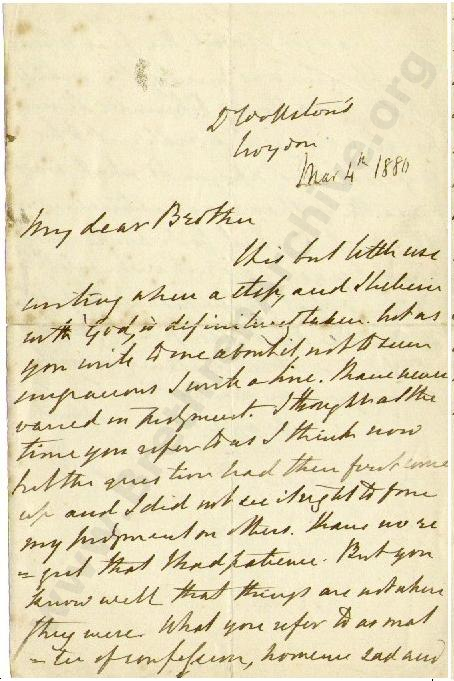 Dr Wolston's
Croydon
Mar 4th 1880
My dear Brother
Tis but little use
writing when a step, and I believe
with God, is definitively taken. but as
you write to me about it, not to seem
ungracious I write a line. I have never
varied in judgment. I thought at the
time you refer to as I think now
but the question had then first come
up and I did not see it right to force
my judgment on others. I have no re
=gret that I had patience. But you
know well that things are not where
they were. What you refer to as mat
=ter of confession, however sad and
www.BrethrenArchive.org